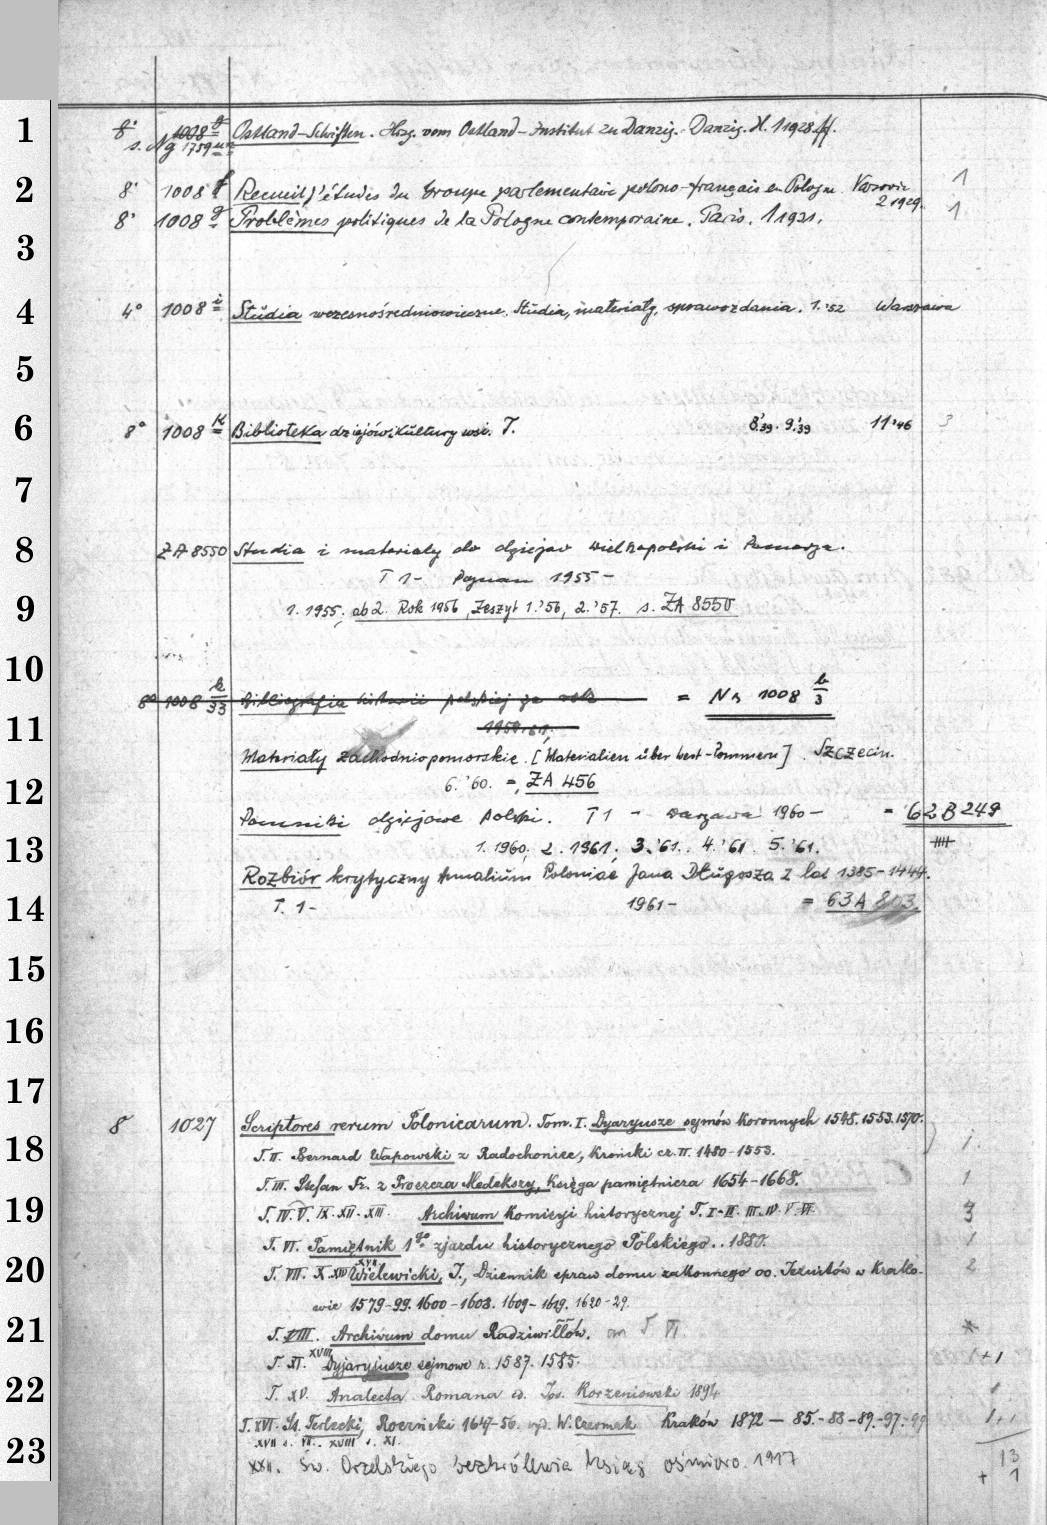 1 8° 1008 Ostland-Schriften. Hrsg. vom Ostland-Institut zu Danzig. Danzig. H. 1 1928 ff.
s. Ng 1759
2 8° 1008 f Recueil d'études du Groupe parlementaire polono-français en Pologne Varsovie 1
2 1929.
8° 1008 g Problèmes politiques de la Pologne contemporaine. Paris. 1 1931. 1
3
4 4° 1008 i Studia wczesnośredniowieczne. Studia, materiały, sprawozdania. 1.'52 Warszawa
5
6 8° 1008 k Biblioteka dziejów kultury wsi. T. 8'39. 9'39 11'46 3
7
8 ZA 8550 Studia i materiały do dziejów Wielkopolski i Pomorza.
T 1- Poznan 1955-
9 1. 1955, ab 2. Rok 1956, Zeszyt 1.'56, 2.'57. s. ZA 8550
10
8° 1008 k/33 Bibliografia historii polskiej za rok = Nr 1008 b/3
11 1960.61.
Materiały zachodniopomorskie. [Materialien über West-Pommern]. Szczecin.
12 6.'60. =, ZA 456
Pomniki dziejowe Polski. T 1 - Warszawa 1960- = 62 B 249
13 1. 1960, 2. 1961, 3.'61. 4.'61 5.'61.
Rozbiór krytyczny Annalium Poloniae Jana Długosza z lat 1385-1444.
14 T. 1- 1961- = 63 A 803.
15
16
17
8 1027 Scriptores rerum Polonicarum. Tom. I. Dyaryusze sejmów koronnych 1548. 1553. 1570. 1
18 T. II. Bernard Wapowski z Radochoniec, Kroniki cz. II. 1480-1553.
T. III. Stefan Fr. z Proszcza Medekszy, Księga pamiętnicza 1654-1668. 1
19 T. IV. V. IX. XII. XIII. Archivum Komisyi historycznej T. I-II. III. IV. V. VI.
T. VI. Pamiętnik 1go zjazdu historycznego Polskiego.. 1880. 1
20 T. VII. X. XIV XVII Wielewicki, J., Dziennik spraw domu zakonnego oo. Jezuitów w Krako- 2
wie 1579-99. 1600-1608. 1609-1619. 1620-29.
21 T. VIII. Archivum domu Radziwiłłów. T VI
T. XI. XVIII Dyjaryusze sejmowe r. 1587. 1585. +1
22 T. XV. Analecta Romana ed. Jos. Korzeniowski 1894 1
T. XVI. St. Temberski, Roczniki 1647-56. wyd. W. Czermak Kraków 1872 - 85.-88-89.-97.-99
23 XVII s. VII. XVIII s. XI.
XXII. Św. Orzelskiego bezkrólewia ksiąg ośmioro. 1917 13
+ 1